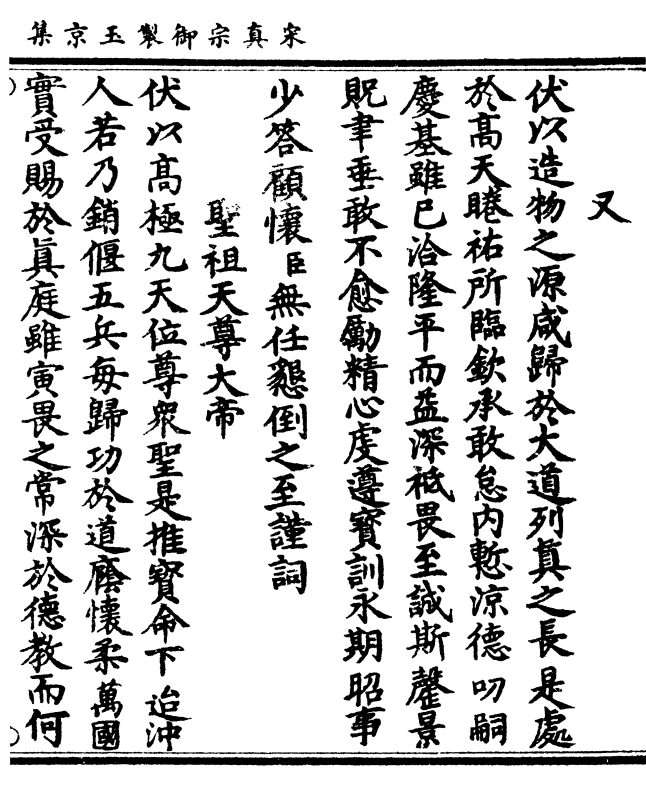 宋真宗御製玉京集
又
伏以造物之源咸歸於大道列真之長是處
於高天睠祐所臨欽承敢怠内慙涼德叨嗣
慶基雖已洽隆平而益深祗畏至誠斯罄景
貺聿垂敢不愈勵精心虔遵寳訓永期昭事
少答顧懷臣無任懇倒之至謹詞
聖祖天尊大帝
伏以高極九天位尊衆聖是推寳命下迨沖
人若乃銷偃五兵每歸功於道廕懷柔萬國
實受賜於真庭雖寅畏之常深於德教而何